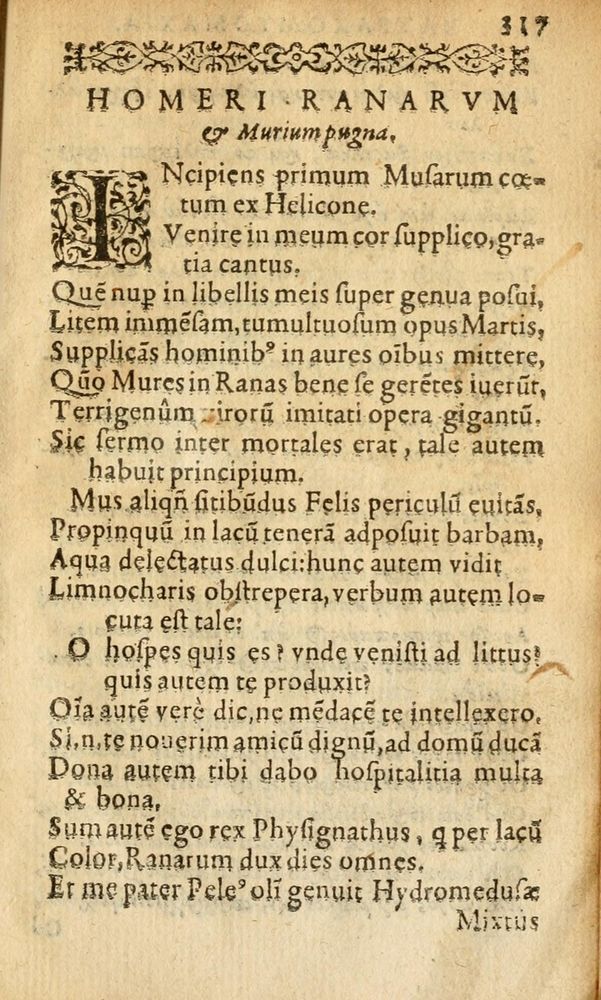 317
HOMERI RANARVM
& Murium pugna.
INcipiens primum Musarum cœ-
tum ex Helicone.
Venire in meum cor supplico, gra-
tia cantus.
Quē nuꝑ in libellis meis super genua posui,
Litem immēsam, tumultuosum opus Martis,
Supplicās hominibꝰ in aures oībus mittere,
Quō Mures in Ranas bene se gerētes iuerūt,
Terrigenûm virorū imitati opera gigantū.
Sic sermo inter mortales erat, tale autem
habuit principium.
Mus aliqñ sitibūdus Felis periculū euitās,
Propinquū in lacū tenerā adposuit barbam,
Aqua delectatus dulci: hunc autem vidit
Limnocharis obstrepera, verbum autem lo-
cuta est tale:
O hospes quis es? vnde venisti ad littus?
quis autem te produxit?
Oīa autē verè dic, ne mēdacē te intellexero.
Si.n.te nouerim amicū dignū, ad domū ducā
Dona autem tibi dabo hospitalitia multa
& bona,
Sum autē ego rex Physignathus, q per lacū
Color, Ranarum dux dies omnes.
Et me pater Peleꝰ olī genuit Hydromedusæ
Mixtus